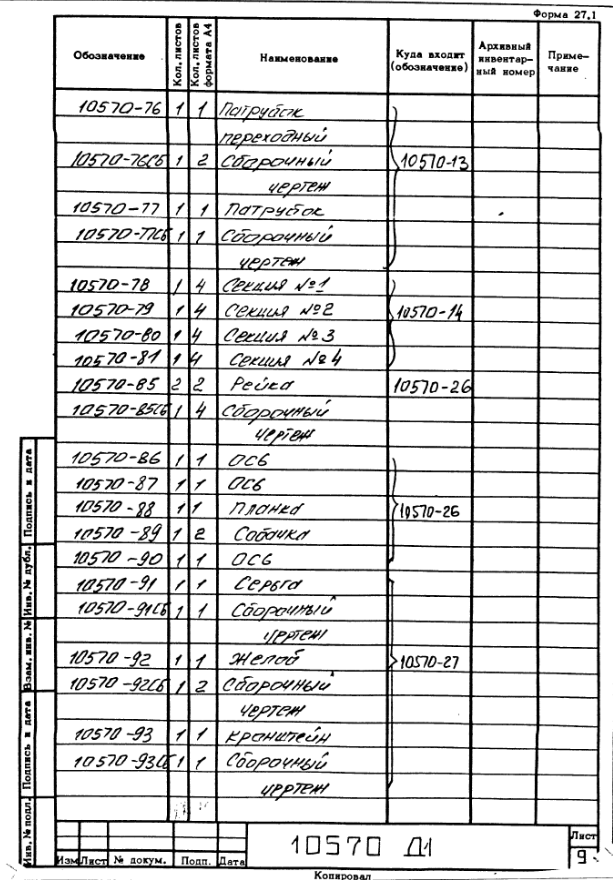 Форма 27.1
Обозначение Кол. листов Кол. листов формата А4 Наименование Куда входит (обозначение) Архивный инвентарный номер Примечание
10570-76 1 1 Патрубок
переходный
10570-76СБ 1 2 Сборочный 10570-13
чертеж
10570-77 1 1 Патрубок
10570-77СБ 1 1 Сборочный
чертеж
10570-78 1 4 Секция №1
10570-79 1 4 Секция №2 10570-14
10570-80 1 4 Секция №3
10570-81 1 4 Секция №4
10570-85 2 2 Рейка 10570-26
10570-85СБ 1 4 Сборочный
чертеж
10570-86 1 1 Ось
10570-87 1 1 Ось
10570-88 1 1 Планка 10570-26
10570-89 1 2 Собачка
10570-90 1 1 Ось
10570-91 1 1 Серьга
10570-91СБ 1 1 Сборочный
чертеж
10570-92 1 1 Желоб 10570-27
10570-92СБ 1 2 Сборочный
чертеж
10570-93 1 1 Кронштейн
10570-93СБ 1 1 Сборочный
чертеж
Подпись и дата
Инв. № дубл.
Взам. инв. №
Подпись и дата
Инв. № подл.
Изм Лист № докум. Подп. Дата
10570 Д1
Лист
9
Копировал